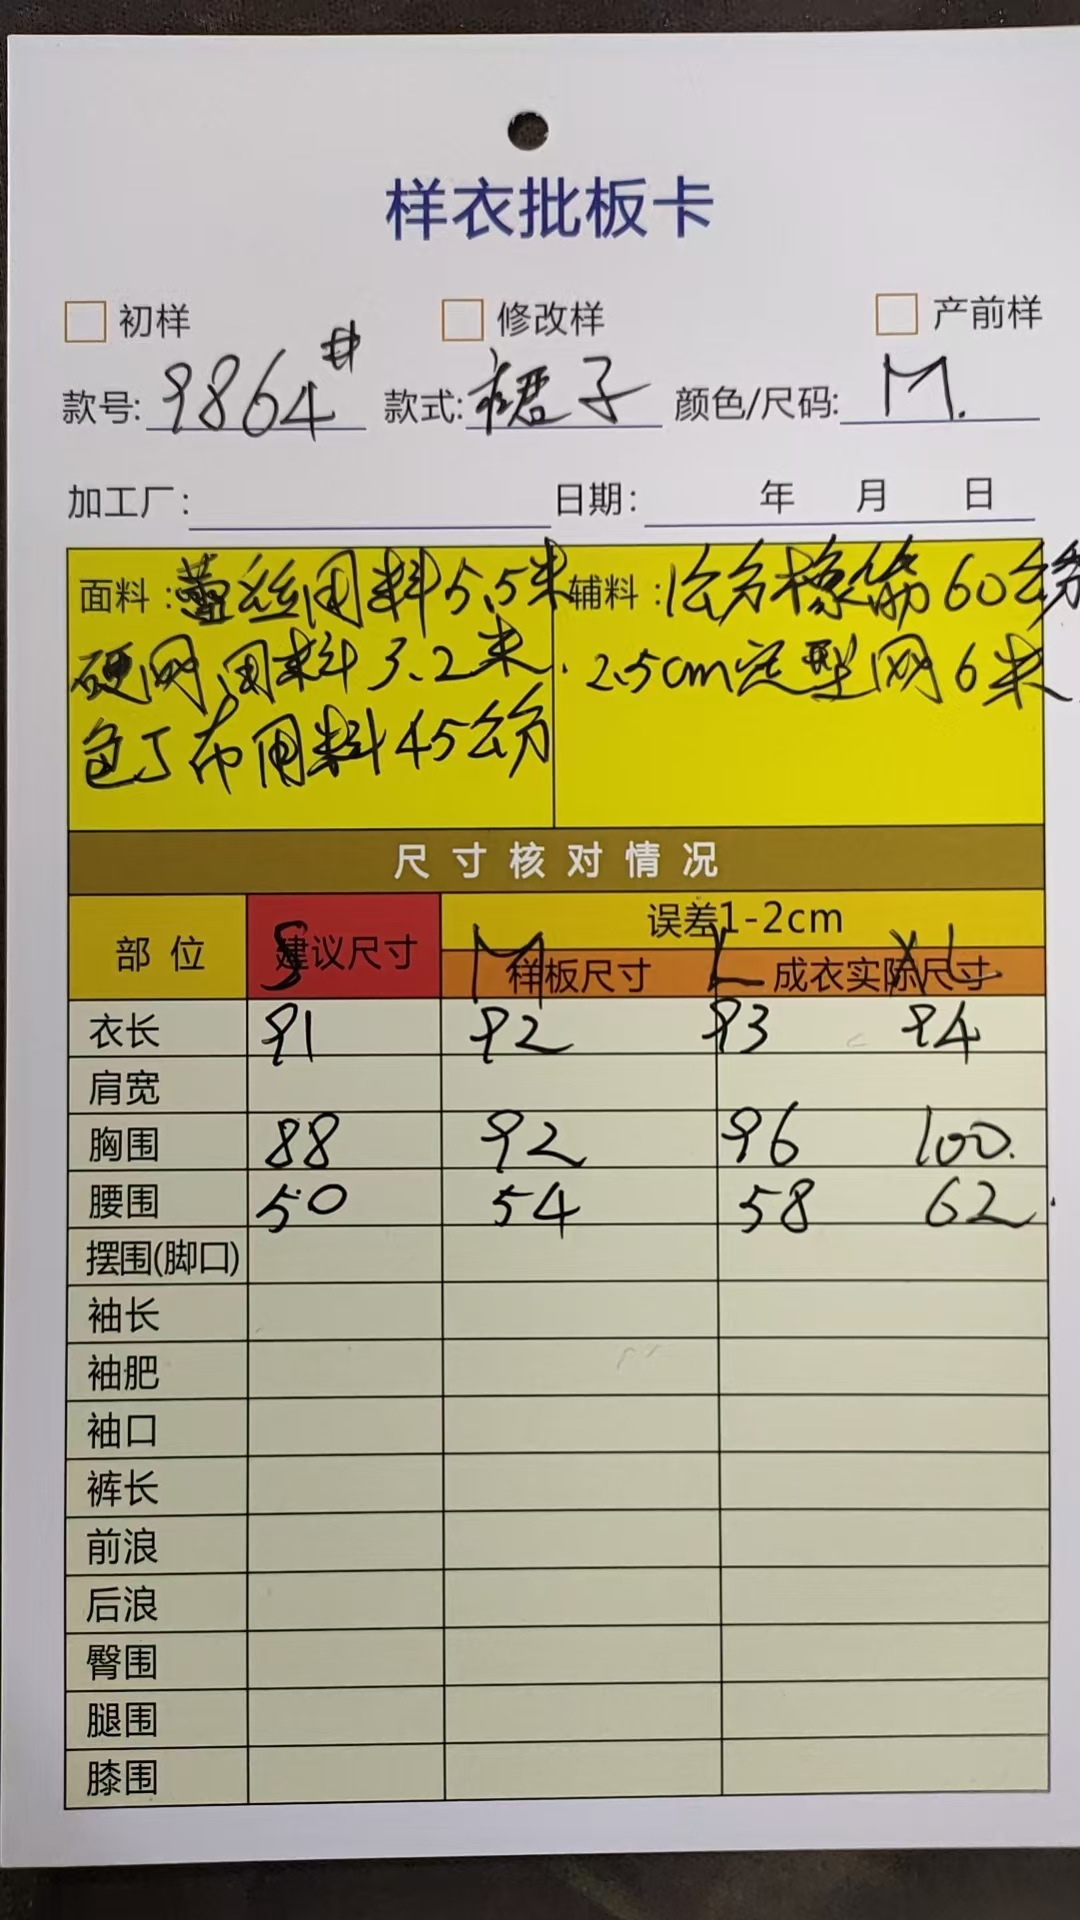 样衣批板卡
初样 修改样 产前样
款号: 9864# 款式: 裙子 颜色/尺码: M.
加工厂: 日期: 年 月 日
面料: 蕾丝用料5.5米 辅料: 1公分橡筋60公分
硬网用料3.2米. 2.5cm定型网6米
色丁布用料45公分
尺寸核对情况
部位 建议尺寸 误差1-2cm
样板尺寸 成衣实际尺寸
S M L XL
衣长 91 92 93 94
肩宽
胸围 88 92 96 100.
腰围 50 54 58 62.
摆围(脚口)
袖长
袖肥
袖口
裤长
前浪
后浪
臀围
腿围
膝围